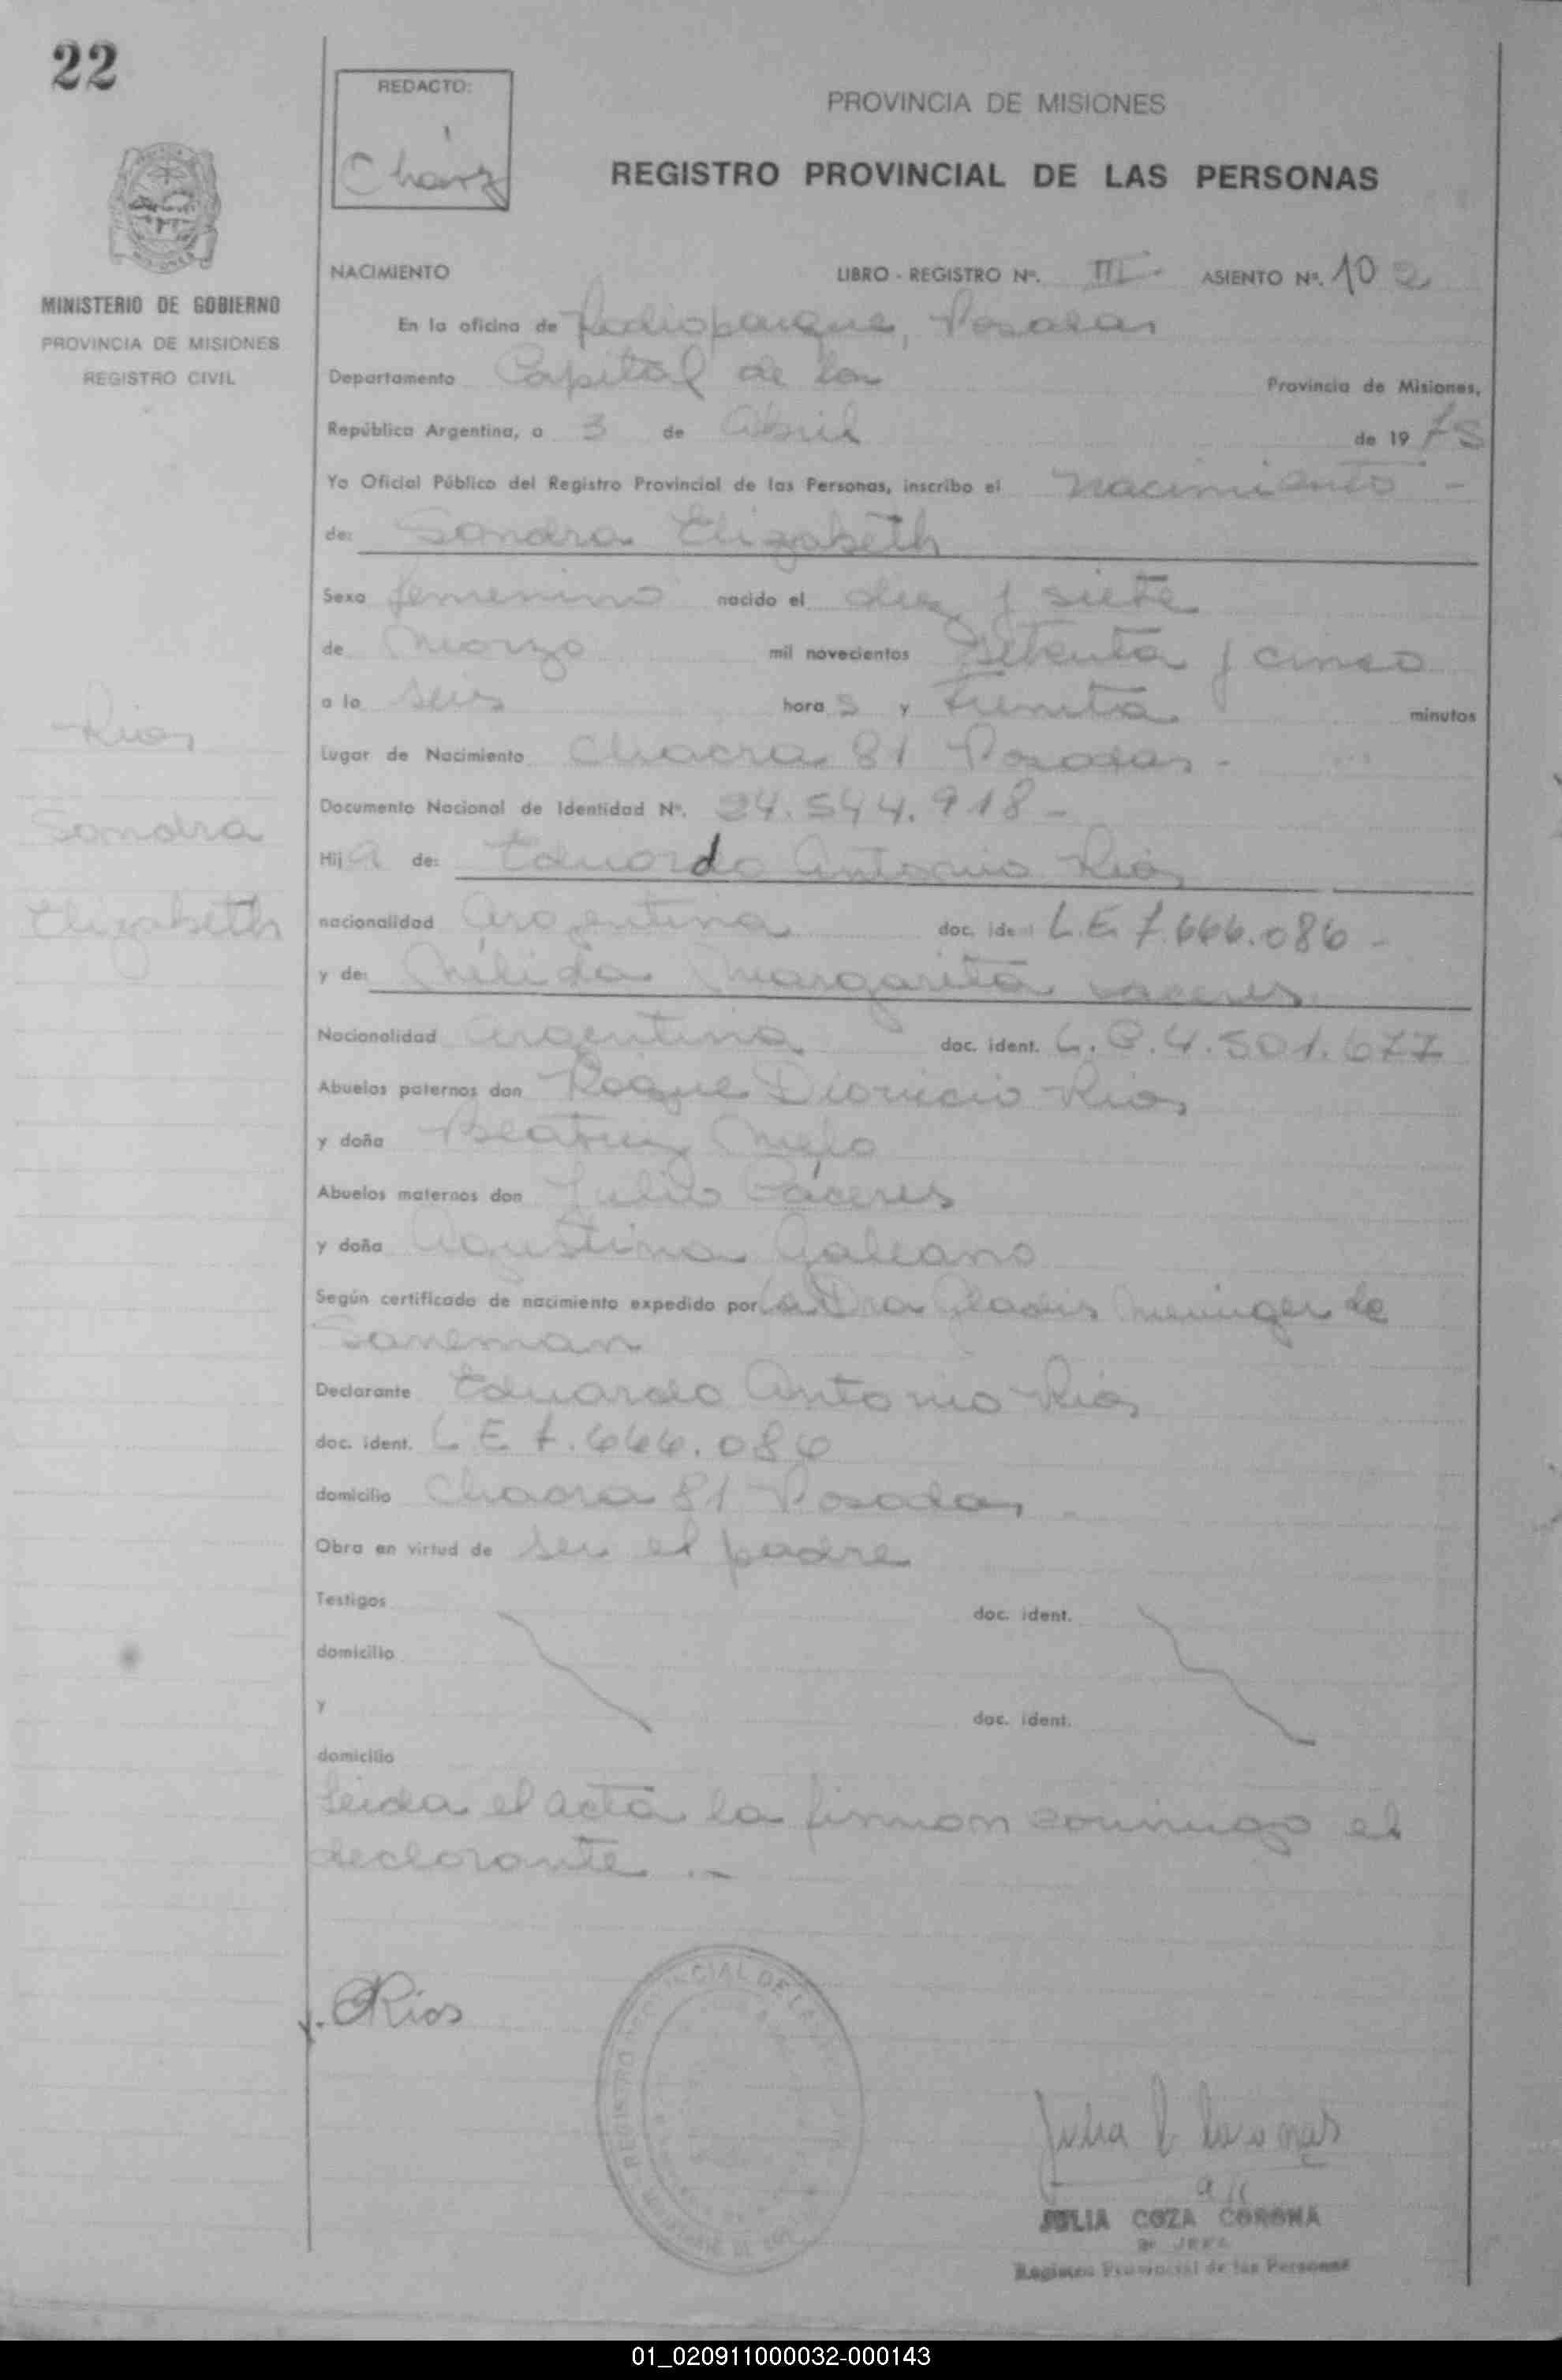 22
REDACTO:
PROVINCIA DE MISIONES
REGISTRO PROVINCIAL DE LAS PERSONAS
MINISTERIO DE GOBIERNO
PROVINCIA DE MISIONES
REGISTRO CIVIL
NACIMIENTO LIBRO - REGISTRO Nº. III - ASIENTO Nº. 102
En la oficina de Radioparque, Posadas
Departamento Capital de la Provincia de Misiones,
República Argentina, a 3 de Abril de 1975
Yo Oficial Público del Registro Provincial de las Personas, inscribo el nacimiento -
de: Sandra Elizabeth
Sexo femenino nacido el diez y siete
de Marzo mil novecientos setenta y cinco
a la seis hora s y treinta minutos
Lugar de Nacimiento Chacra 81 Posadas -
Documento Nacional de Identidad Nº. 24.544.918 -
Hij a de: Eduardo Antonio Rios
nacionalidad argentina doc. ident L.E. 7.666.086 -
y de: Nélida Margarita caceres
Nacionalidad argentina doc. ident. L.C. 4.501.677
Abuelos paternos don Roque Dionicio Rios
y doña Beatriz Melo
Abuelos maternos don Julio Cáceres
y doña Agustina Galeano
Según certificado de nacimiento expedido por la Dra Gladis Meninger de
Saneman
Declarante Eduardo Antonio Rios
doc. ident. L E 7.666.086
domicilio Chacra 81 Posadas -
Obra en virtud de ser el padre
Testigos doc. ident.
domicilio
y doc. ident.
domicilio
Leida el acta la firman conmigo el
declarante .-
Rios
Sandra
Elizabeth
Rios
JULIA COZA CORONA
Registro Provincial de las Personas
01_020911000032-000143